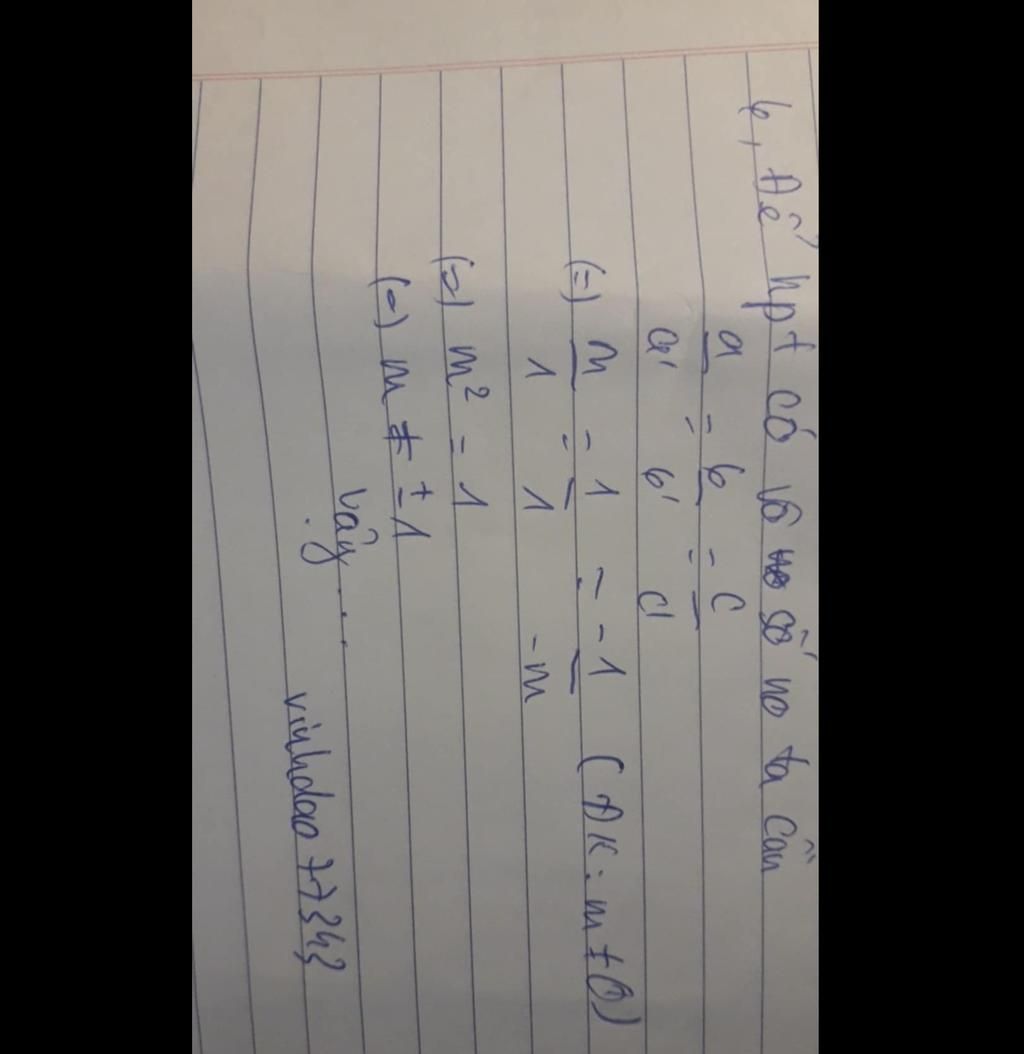 b, Để hpt có vô số no ta cần
a/a' = b/b' = c/c'
(=) m/1 = 1/1 = -1/-m (ĐK: m ≠ 0)
(=) m² = 1
(=) m ≠ ±1
Vậy....
vinhdao77343